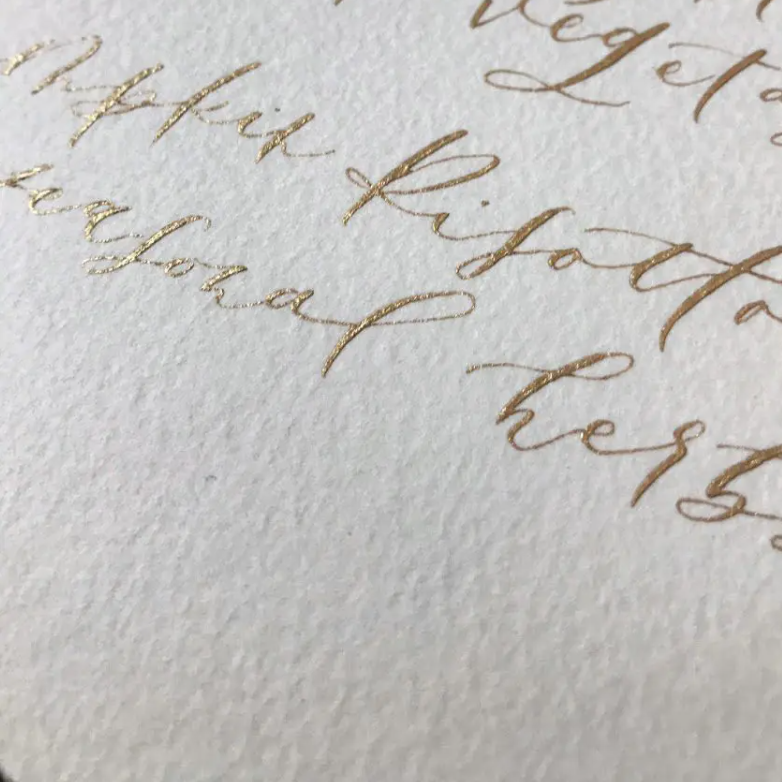 Vegeta
mpkin Risotto
seasonal herbs